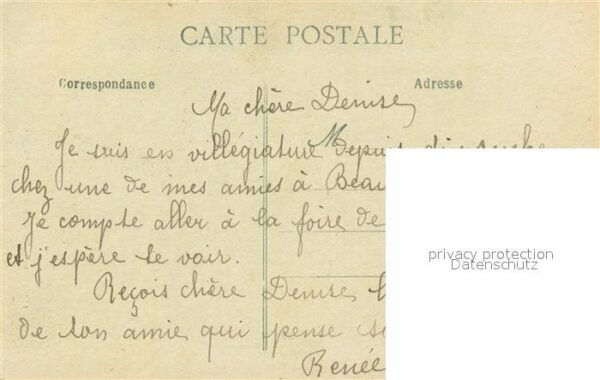 CARTE POSTALE
Correspondance
Adresse
Ma chère Denise,
Je suis en villégiature depuis dimanche
chez une de mes amies à Beau
Je compte aller à la foire de
et j'espère te voir.
Reçois chère Denise, l
de ton amie qui pense
Renée
privacy protection
Datenschutz